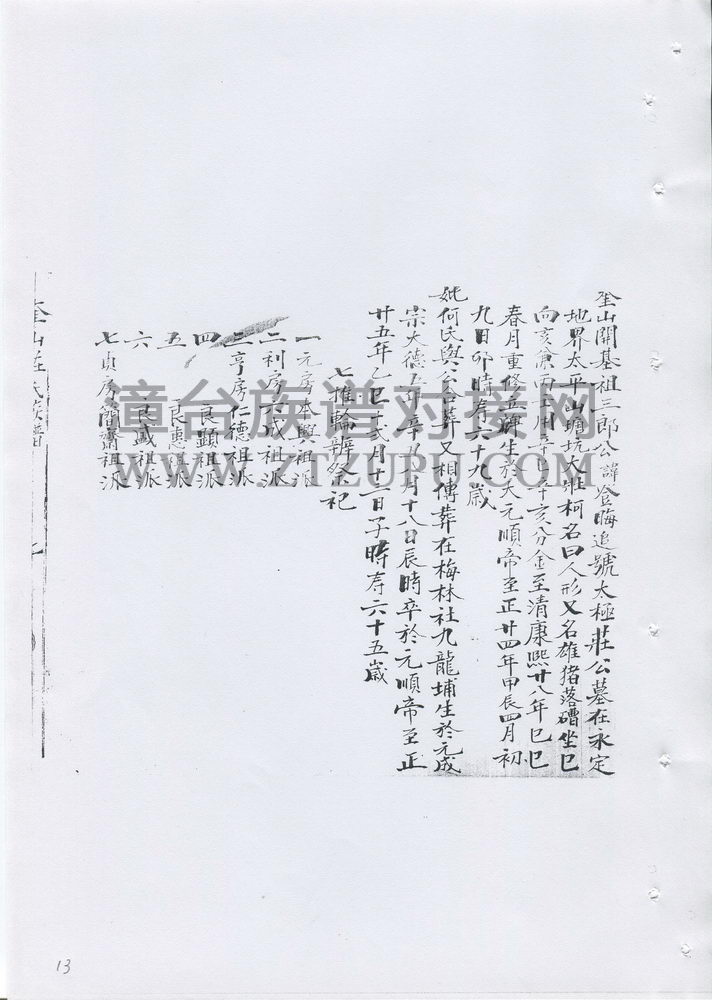 奎山開基祖三郎公諱登晦追號太極莊公墓在永定
地界太平山塘坑大壯柯名曰人形又名雄猪落磄坐巳
向亥兼丙用辛巳辛亥分金至清康熙廿八年巳巳
春月重修立碑生於大元順帝至正廿四年甲辰四月初
九日卯時寿六十九歲
妣何氏與公合葬又相傳葬在梅林社九龍埔生於元成
宗大德五年辛丑月十八日辰時卒於元順帝至正
廿五年乙巳弍月十二日子時寿六十五歲
七推輪辦祭祀
一元房本興祖派
二利房六成祖派
三亨房仁德祖派
四 良顯祖派
五 良惠祖派
六 良盛祖派
七貞房簡齋祖派
奎山莊氏族譜
漳台族谱对接网
WWW.ZTZUPU.COM
13